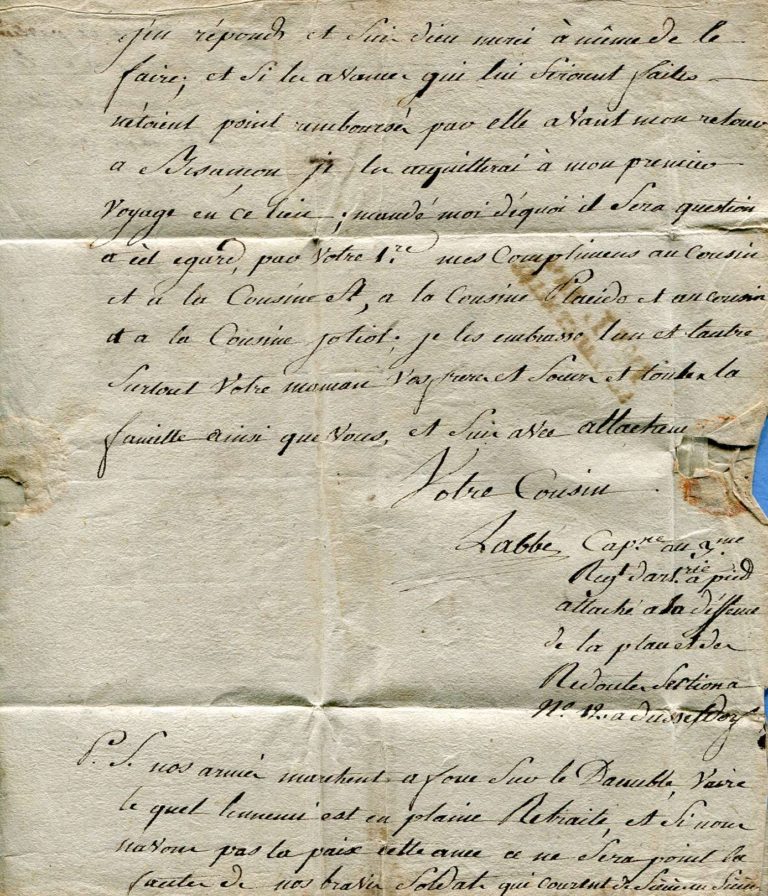 j'en réponds et suis dieu merci à même de le
faire, et si les avances qui lui seront faites
n'étoient point remboursés par elle avant mon retour
a Besançon je les acquitterai à mon premier
voyage en ce lieu; mandé moi dequoi il sera question
a cet egard, par votre 1.re mes complimens au cousin
et a la cousine St, a la cousine Placide et au cousin
et a la cousine joliot; je les embrasse l'un et l'autre
surtout votre maman vos frere et soeur et toute la
famille ainsi que vous, et suis avec attacheme
Votre Cousin
Labbé, Cap.ne au me
Regt d'art.rie a pied
attaché a la deffense
de la place et des
Redoutes Section a
N.o 12. a dusseldorf
P. S. nos armées marchent a force sur le Danube,
le quel l'ennemi est en plaine Retraite, et si nous
n'avons pas la paix cette anée ce ne sera point la
faute de nos braves soldats qui courent de